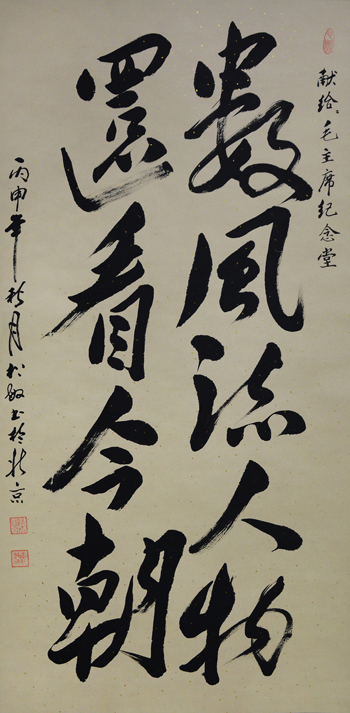 献给毛主席纪念堂
數風流人物
還看今朝
丙申年秋月
书於北京